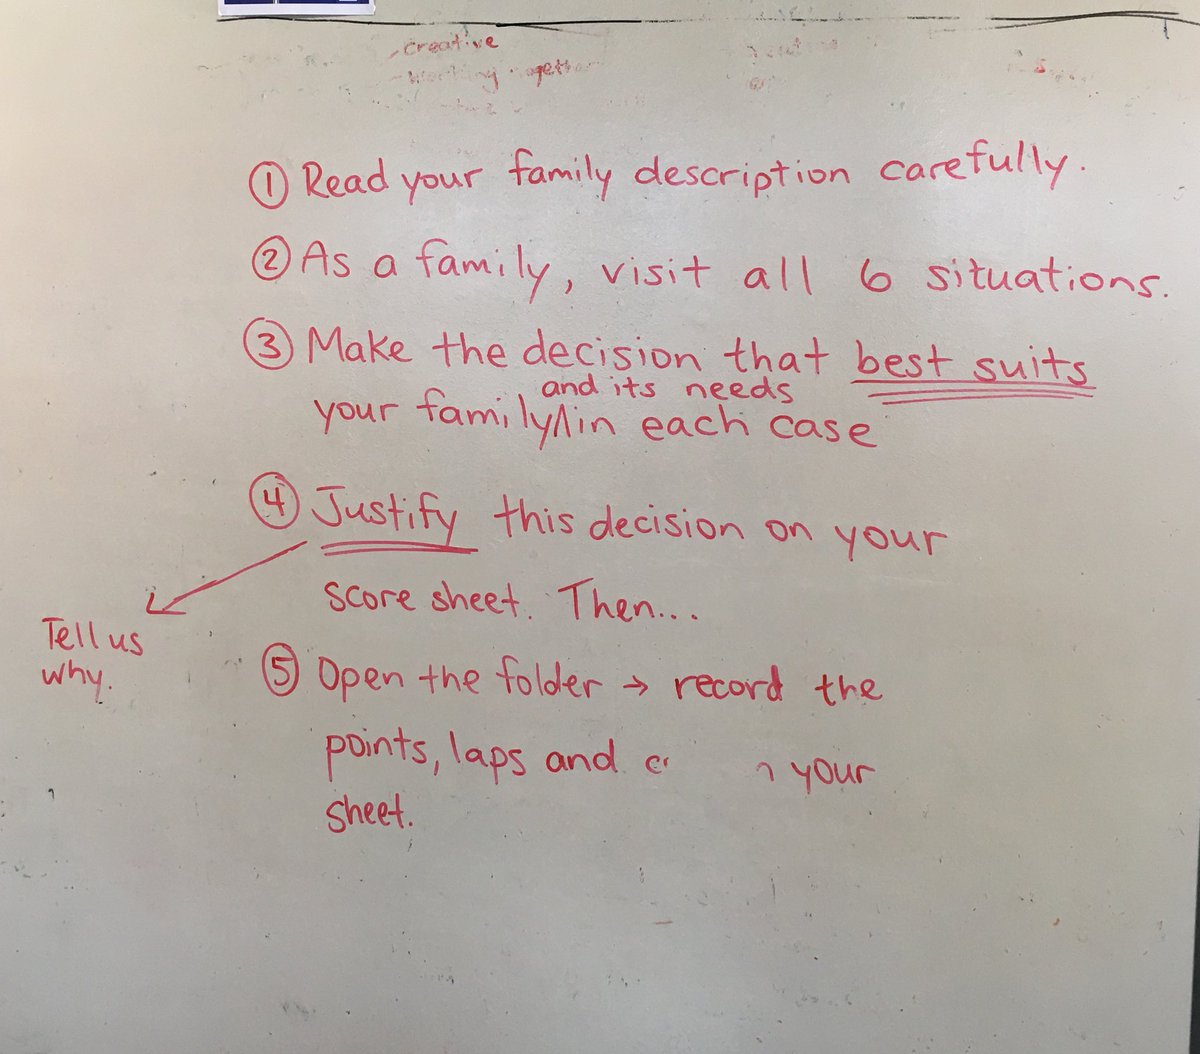 - creative
- working together
① Read your family description carefully.
② As a family, visit all 6 situations.
③ Make the decision that best suits
and its needs
your family/\in each case
④ Justify this decision on your
score sheet. Then...
Tell us
why.
⑤ Open the folder → record the
points, laps and your
sheet.